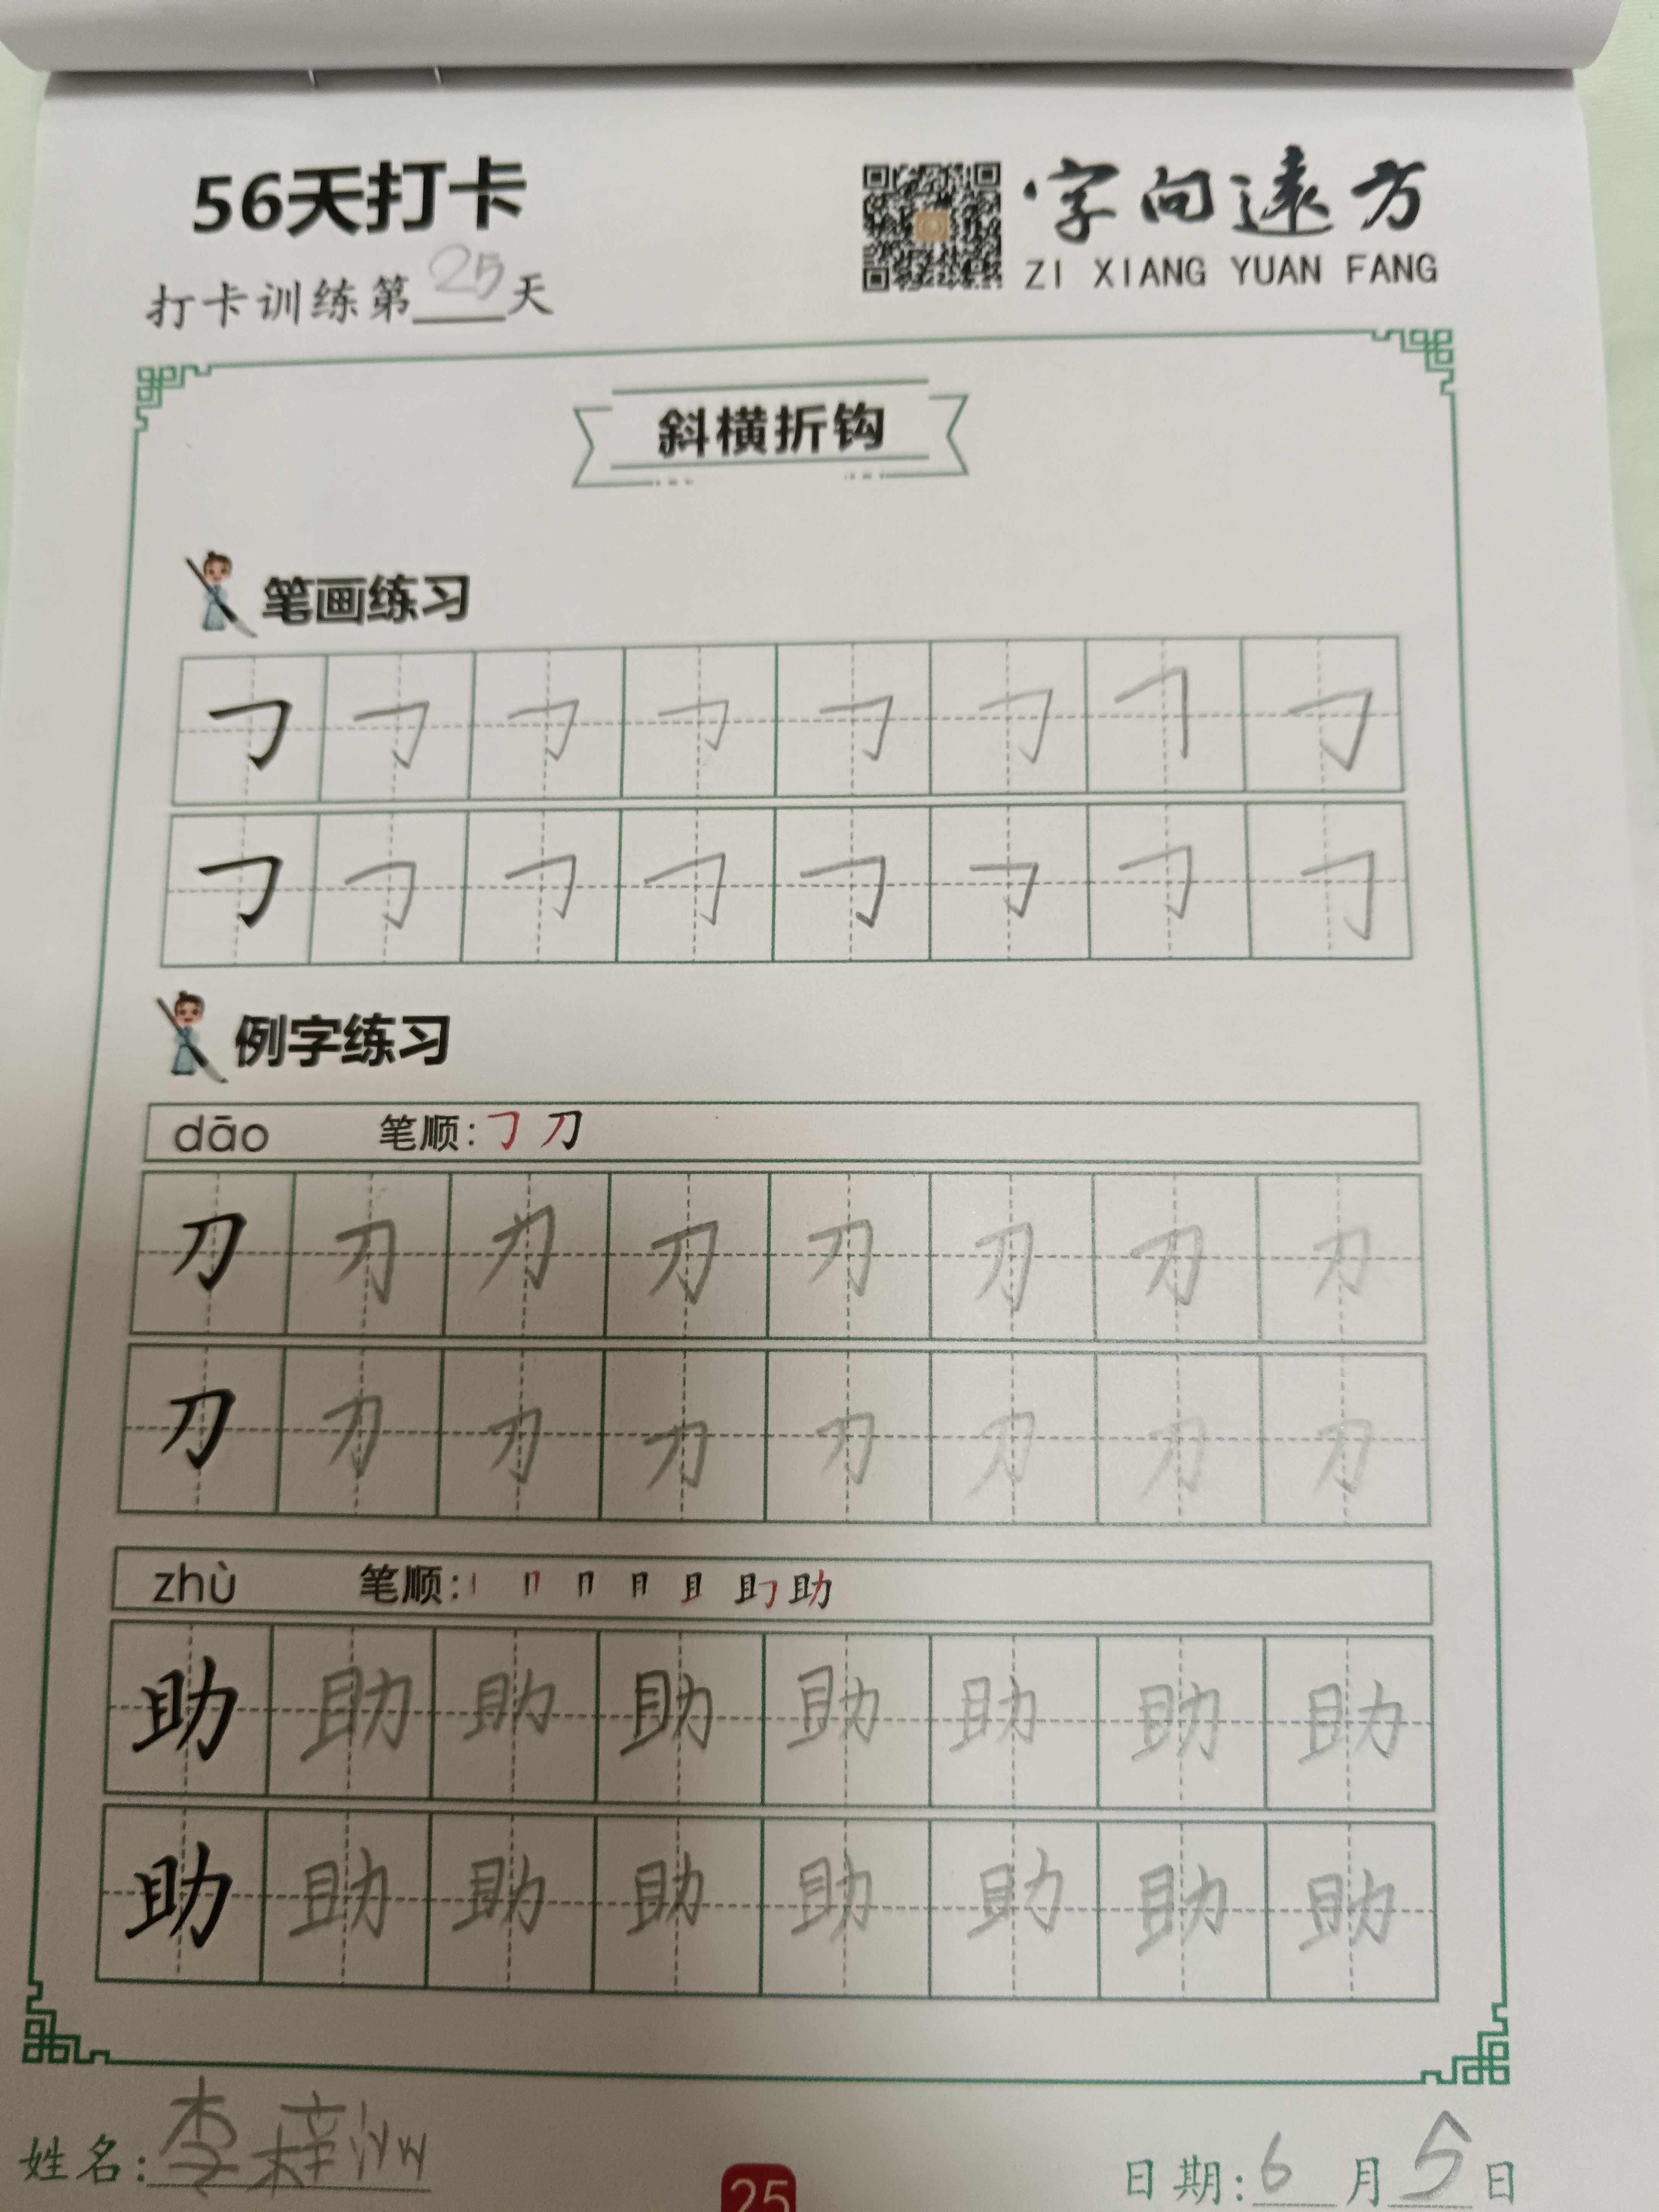 56天打卡
字向遠方
ZI XIANG YUAN FANG
打卡训练第25天
斜横折钩
笔画练习
𠃌 𠃌 𠃌 𠃌 𠃌 𠃌 𠃌 𠃌
𠃌 𠃌 𠃌 𠃌 𠃌 𠃌 𠃌 𠃌
例字练习
dāo 笔顺:𠃌 刀
刀 刀 刀 刀 刀 刀 刀 刀
刀 刀 刀 刀 刀 刀 刀 刀
zhù 笔顺: 助
助 助 助 助 助 助 助 助
助 助 助 助 助 助 助 助
姓名:李梓
25
日期:6月5日